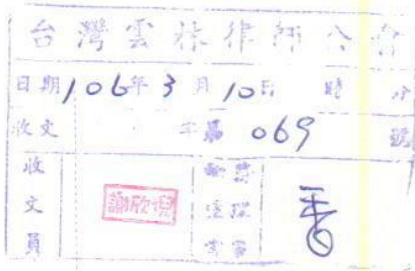 台灣雲林律師公會
日期106年3月10日 時 分
收文 字第069號
收文員 謝欣